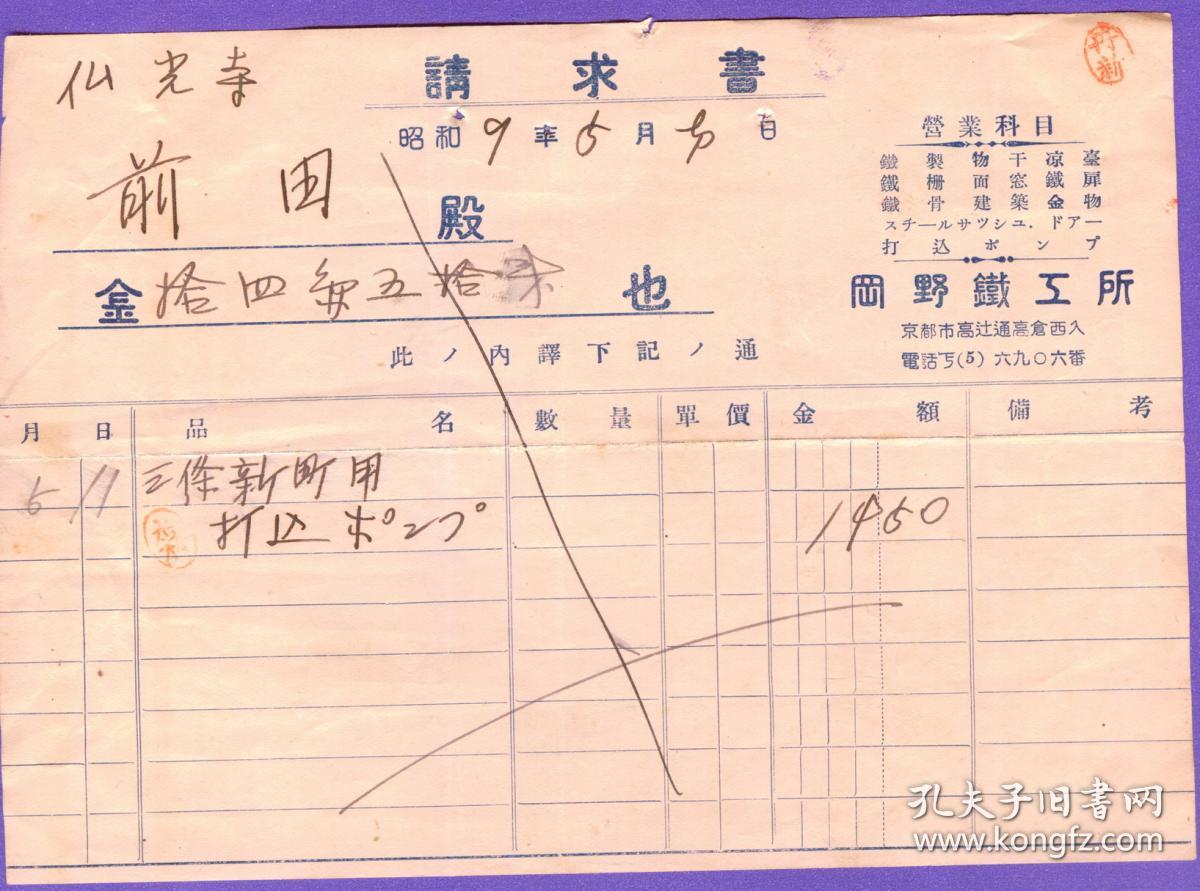 仏光寺
請求書
昭和9年5月 日
前田殿
金拾四匁五拾 也
此ノ内譯下記ノ通
營業科目
鐵製物干凉臺
鐵柵面窓鐵扉
鐵骨建築金物
スチールサツシユ.ドアー
打込ポンプ
岡野鐵工所
京都市高辻通高倉西入
電話下(5)六九〇六番
月 日 品名 數量 單價 金額 備考
5 11 三條新町用
打込ポンプ 1450
孔夫子旧书网
www.kongfz.com